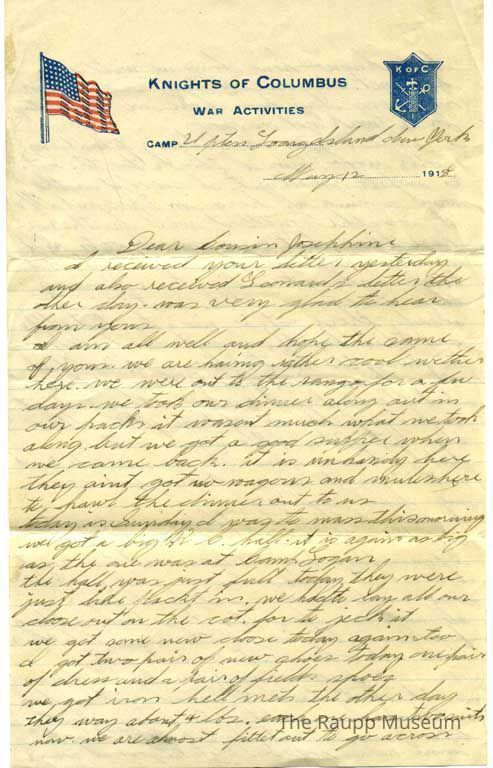 K OF C
KNIGHTS OF COLUMBUS
WAR ACTIVITIES
CAMP Upton Long Island New York
May 12 1918
Dear Cousin Josephine
I received your letter yesterday
and also received Leonard's letter the
other day. was very glad to hear
from yous
I am all well and hope the same
of yous. we are haing rather cool wether
here. we were out to the range for a few
days. we took our dinner along out in
our packs it wasent much what we took
along. but we got a good supper when
we came back. it is unhandy here
they aint got no wagons and mules here
to hawl the dinner out to us
today is Sunday I was to mass this morning
we got a big K. C. hall. it is again as big
as the one was at Camp Logan
the hall was just full today they were
just like packt in. we hadto lay all our
close out on the cot. for to
we got some new close today again too
I got two pair of new shoes today one pair
of dress and a pair of field shoes
we got iron hellmets the other day
they way about 4 lbs.
now. we are almost fittet out to go across
The Raupp Museum